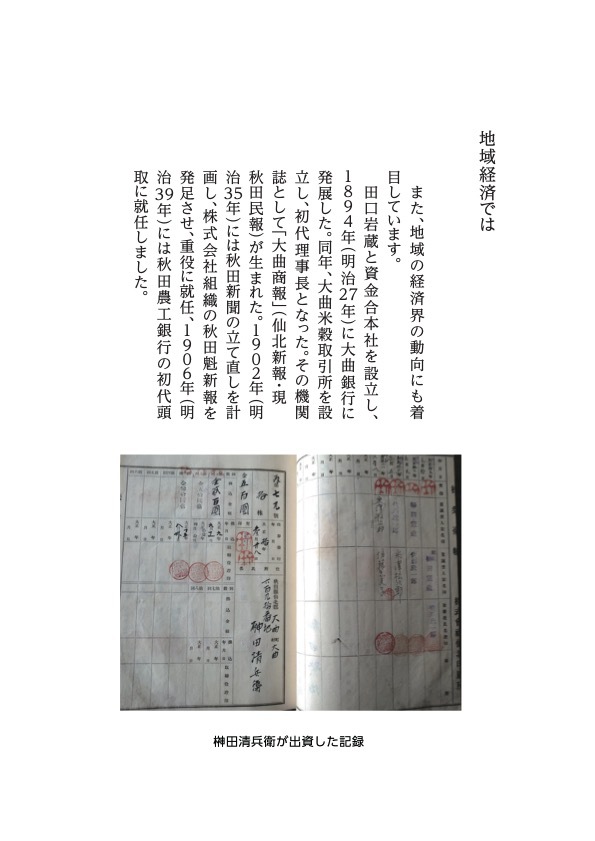 地域経済では
また、地域の経済界の動向にも着
目しています。
田口岩蔵と資金合本社を設立し、
1894年(明治27年)に大曲銀行に
発展した。同年、大曲米穀取引所を設
立し、初代理事長となった。その機関
誌として「大曲商報」(仙北新報・現
秋田民報)が生まれた。1902年(明
治35年)には秋田新聞の立て直しを計
画し、株式会社組織の秋田魁新報を
発足させ、重役に就任、1906年(明
治39年)には秋田農工銀行の初代頭
取に就任しました。
五百圓
大曲町大曲
榊田清兵衛
榊田清兵衛が出資した記録